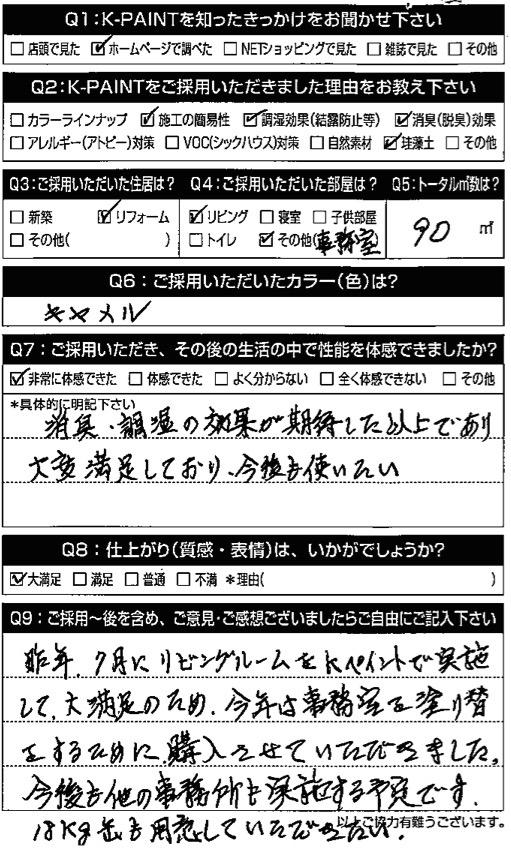 Q1:K-PAINTを知ったきっかけをお聞かせ下さい
□店頭で見た ☑ホームページで調べた □NETショッピングで見た □雑誌で見た □その他
Q2:K-PAINTをご採用いただきました理由をお教え下さい
□カラーラインナップ ☑施工の簡易性 ☑調湿効果(結露防止等) ☑消臭(脱臭)効果
□アレルギー(アトピー)対策 □VOC(シックハウス)対策 □自然素材 ☑珪藻土 □その他
Q3:ご採用いただいた住居は? Q4:ご採用いただいた部屋は? Q5:トータル㎡数は?
□新築 ☑リフォーム ☑リビング □寝室 □子供部屋 90 ㎡
□その他( ) □トイレ ☑その他(事務室
Q6:ご採用いただいたカラー(色)は?
キャメル
Q7:ご採用いただき、その後の生活の中で性能を体感できましたか?
☑非常に体感できた □体感できた □よく分からない □全く体感できない □その他
*具体的に明記下さい
消臭・調湿の効果が期待した以上であり
大変満足しており、今後も使いたい
Q8:仕上がり(質感・表情)は、いかがでしょうか?
☑大満足 □満足 □普通 □不満 *理由( )
Q9:ご採用～後を含め、ご意見・ご感想ございましたらご自由にご記入下さい
昨年、7月にリビングルームをKペイントで実施
して、大満足のため、今年は事務室を塗り替
えをするために、購入させていただきました。
今後も他の事務所も実施する予定です。
18Kg缶も用意していただきたい。
以上ご協力有難うございます。